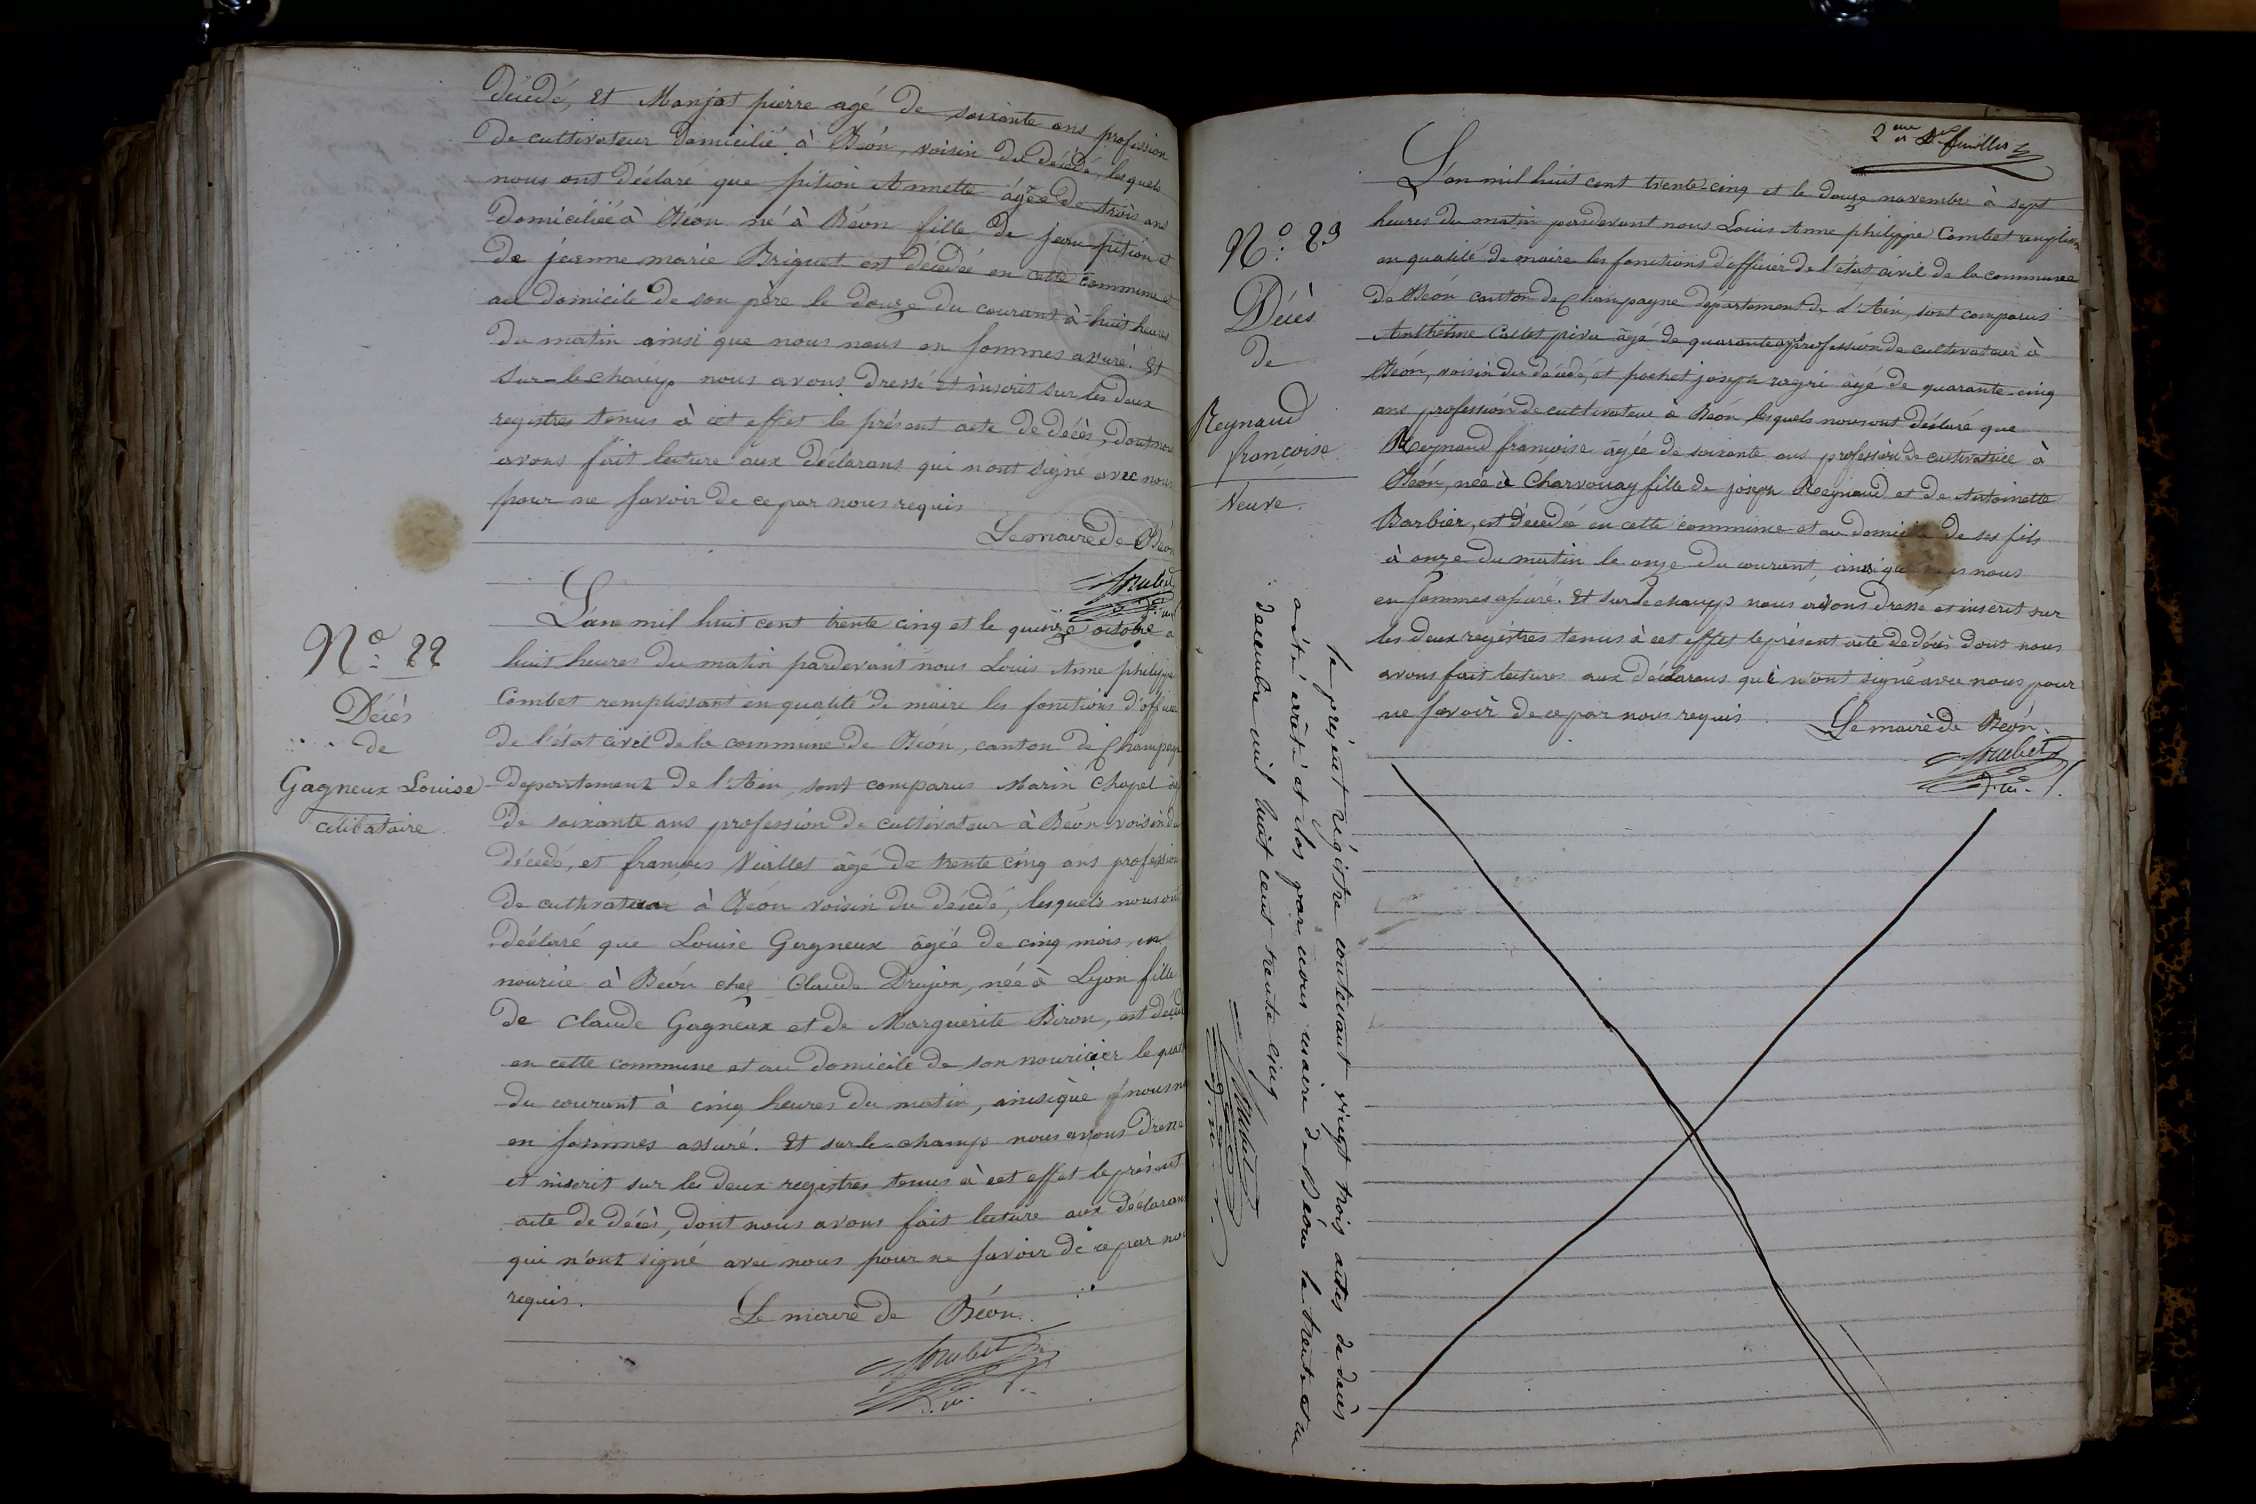 décédé, et Manjot pierre agé de soixante ans profession
de cultivateur domicilié à Béon, voisin du décédé, lesquels
nous ont déclaré que pition Annette âgée de trois ans
domiciliéé à Béon né à Béon fille de jean pition et
de jeanne marie Briguet est décédéé en cette commune et
au domicile de son père le douze du courant à huit heures
du matin ainsi que nous nous en sommes assuré. Et
sur-le champ nous avons dressé et inscrit sur les deux
registres tenus à cet effet le présent acte de décès, dont nous
avons fait lecture aux déclarans qui n'ont signé avec nous
pour ne savoir de ce par nous requis
Le maire de Béon
N.° 22
Décès
de
Gagneux Louise
célibataire
L'an mil huit cent trente cinq et le quinze octobre à
huit heures du matin pardevant nous Louis Anne philippe
Combet remplissant en qualité de maire les fonctions d'officier
de l'état civil de la commune de Béon, canton de Champagne
département de l'Ain, sont comparus Marin Chapel âgé
de soixante ans profession de cultivateur à Béon voisin du
décédé, et françois Viallet âgé de trente cinq ans profession
de cultivateur à Béon voisin du décédé, lesquels nous ont
déclaré que Louise Gagneux âgéé de cinq mois, en
nourice à Béon chez Claude Drujon, néé à Lyon fille
de Claude Gagneux et de Marguerite Biron, est décédé
en cette commune et au domicile de son nouricier le
du courant à cinq heures du matin, ainsique nous
en sommes assuré. Et sur le-champ nous avons dressé
et inscrit sur les deux registres tenus à cet effet le présent
acte de décès, dont nous avons fait lecture aux déclarans
qui n'ont signé avec nous pour ne savoir de ce par nous
requis.
Le maire de Béon.
2eme et Der feuillet
N.° 23
Décès
de
Reynaud
françoise
Veuve.
L'an mil huit cent trente-cinq et le douze novembre à sept
heures du matin pardevant nous Louis Anne philippe Combet
en qualité de maire les fonctions d'officier de l'état civil de la commune
de Béon canton de Champagne département de l'Ain, sont comparus
Anthelme âgé de quarante profession de cultivateur à
Béon, voisin du décédé, et pochet joseph âgé de quarante-cinq
ans profession de cultivateur à Béon lesquels nous ont déclaré que
Reynaud françoise âgéé de soixante ans profession de cultivatrice à
Béon, néé à Charvonay fille de joseph Reynaud et de Antoinette
Barbier, est décédéé en cette commune et au domicile de ses fils
à onze du matin le onze du courant, ainsi que nous nous
en sommes assuré. Et sur le champ nous avons dressé et inscrit sur
les deux registres tenus à cet effet le présent acte de décès dont nous
avons fait lectures aux déclarans qui n'ont signé avec nous pour
ne savoir de ce par nous requis.
Le maire de Béon
Le présent régistre contenant vingt trois actes de décès
a été arrêté et clos par nous maire de Béon le trente et un
décembre mil huit cent trente cinq